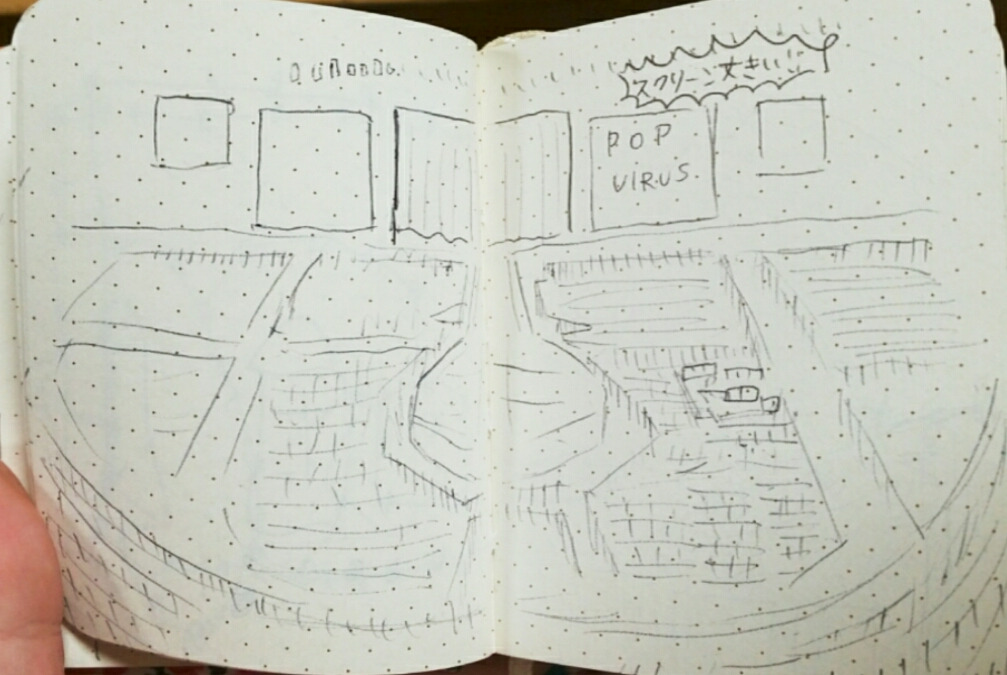 スクリーン大きい!!
POP
VIRUS.